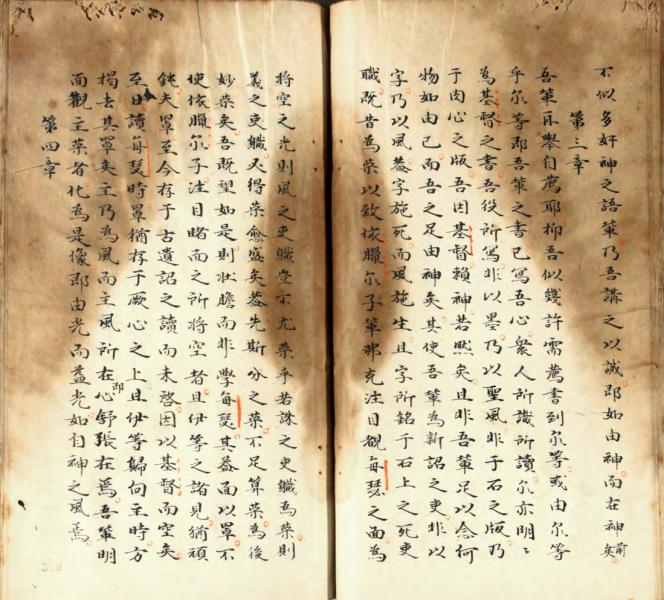 不似多奸神之語輩乃吾講之以誠即如由神而在神前矣
第三章
吾輩再舉自薦耶抑吾似幾許需薦書到尔等或由尔等
乎尔等即吾輩之書已寫吾心衆人所識所讀尔亦明〻
為基督之書吾役所寫非以墨乃以聖風非于石之版乃
于肉心之版吾因基督賴神若然矣且非吾輩足以念何
物如由己而吾之足由神矣其使吾輩為新詔之吏非以
字乃以風葢字施死而風施生且字所銘于石上之死吏
職既昔為荣以致依臘尔子輩弗克注目覩每瑟之面為
將空之光則風之吏職豈不尤荣乎若誅之吏職為荣則
義之吏職又得荣愈盛矣葢先斯分之荣不足算荣為後
妙荣矣吾既望如是則壯膽而非學每瑟其葢面以罩不
使依臘尔子注目睹面之所將空者且伊等之諸見猶頑
鈍夫罩至今存于古遺詔之讀而未啓因以基督而空矣
至日讀每瑟時罩猶存于厥心之上且伊等歸向主時方
揭去其罩矣主乃為風而主風所在心即舒張在焉吾輩明
面觀主荣者化為是像即由光而益光如自神之風焉
第四章
310